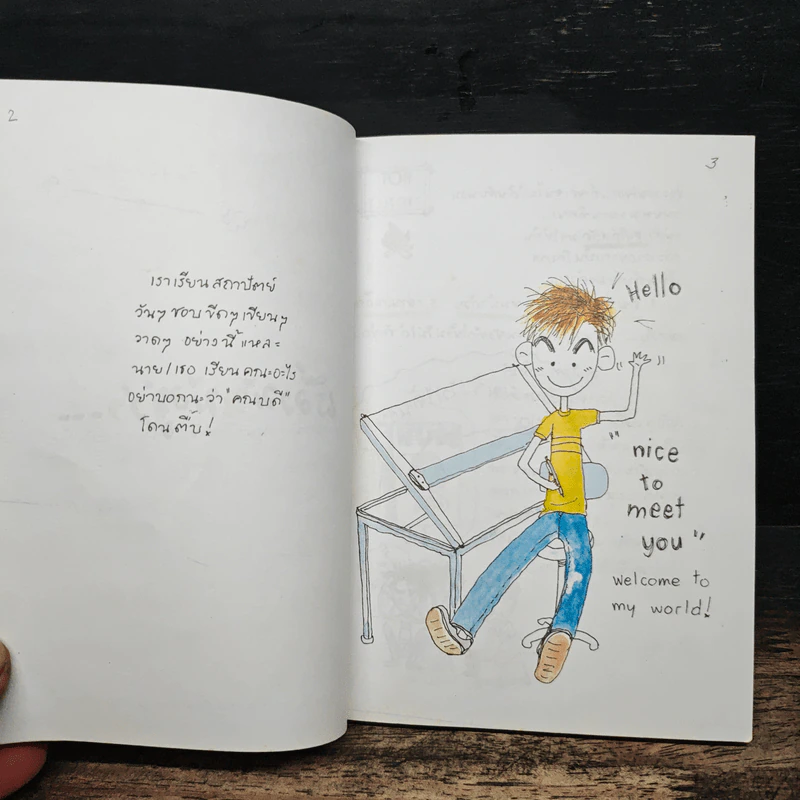 2
เราเรียนสถาปัตย์
วันๆ ชอบขีดๆ เขียนๆ
วาดๆ อย่างนี้แหละ
นาย/เธอ เรียนคณะอะไร
อย่าบอกนะว่า "คณบดี"
โดนตื้บ!
3
Hello
"nice
to
meet
you"
welcome to
my world!